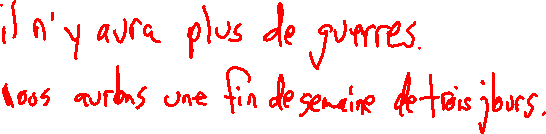 il n'y aura plus de guerres.
nous aurons une fin de semaine de trois jours.